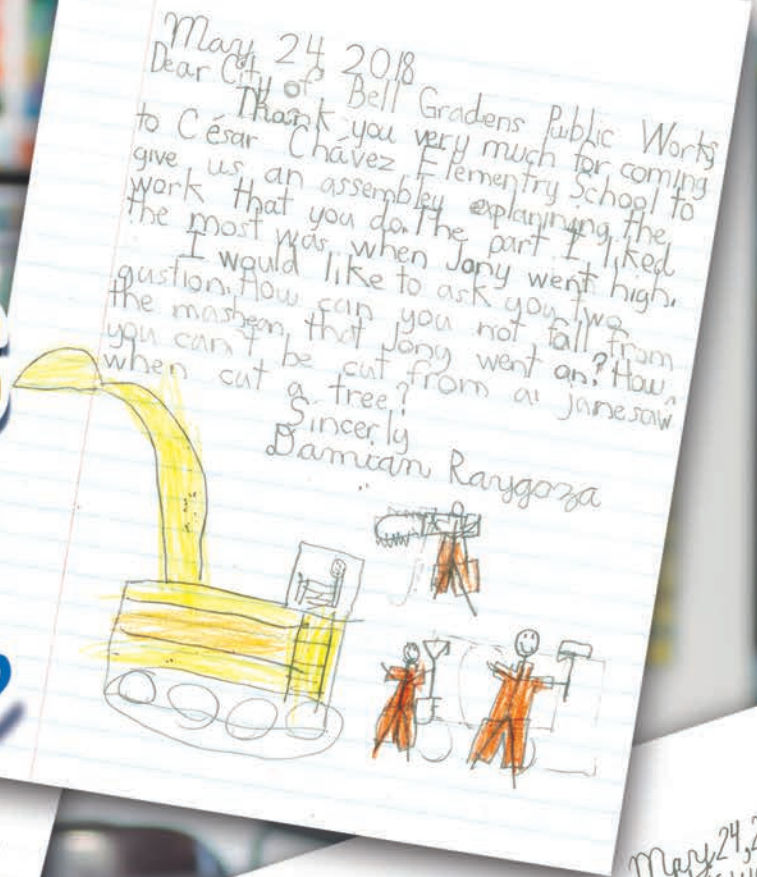 May 24 2018
Dear City of Bell Gradens Public Works
Thank you very much for coming
to César Chávez Elementry School to
give us an assembley explanning the
work that you do. The part I liked
the most was when Jony went high.
I would like to ask you two
qustion. How can you not fall from
the mashean that Jony went on? How
you can't be cut from a janesaw
when cut a tree?
Sincerly
Damian Raygoza
May 24, 2